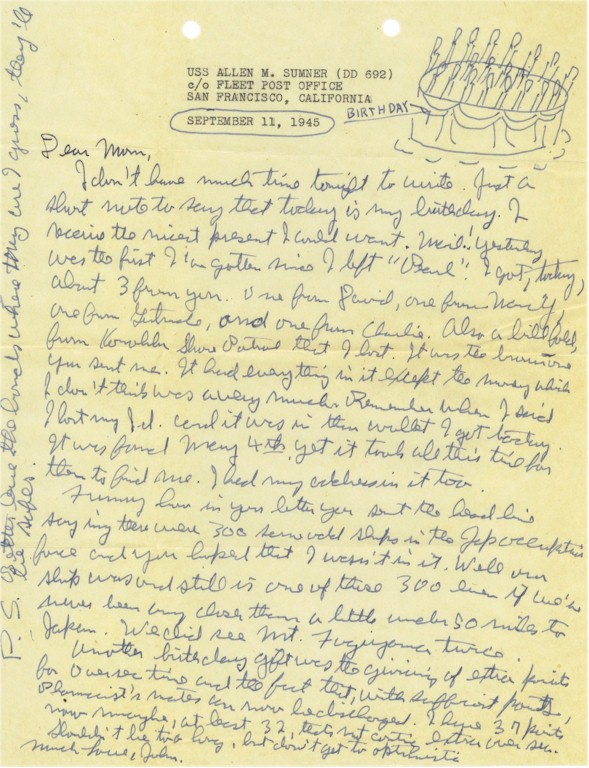 USS ALLEN M. SUMNER (DD 692)
c/o FLEET POST OFFICE
SAN FRANCISCO, CALIFORNIA
SEPTEMBER 11, 1945
BIRTHDAY
Dear Mom,
I don't have much time tonight to write. Just a
short note to say that today is my birthday. I
receive the nicest present I could want. Mail! Yesterday
was the first I'm gotten since I left "Pearl". I got, today,
about 3 from you. One from David, one from Nancy,
one from Gertrude, and one from Charlie. Also a billfold,
from Shore Patrol that I lost. It was the brown one
you sent me. It had everything in it except the money which
I don't think was a very much. Remember when I said
I lost my I.d. card it was in then wallet I got today.
It was found May 4th, yet it took all this time for
them to find me. I had my address in it too.
Funny how in your letter you sent the headline
saying there were 300 some odd ships in the Jap occupation
force and you hoped that I wasn't in it. Well our
ship was and still is one of those 300 even if we've
never been any closer than a little under 50 miles to
Japan. We did see Mt. Fugiyama twice.
Another birthday gift was the giving of extra points
for oversea time and the fact that, with sufficient points,
Pharmacist's mates can now be discharged. I have 37 points
now maybe, at least 32, that's not counting extra over sea.
Shouldn't be too long, but don't get to optimistic
much love, John.
P.S. leave the bonds where they are I guess, they'll
be safer.